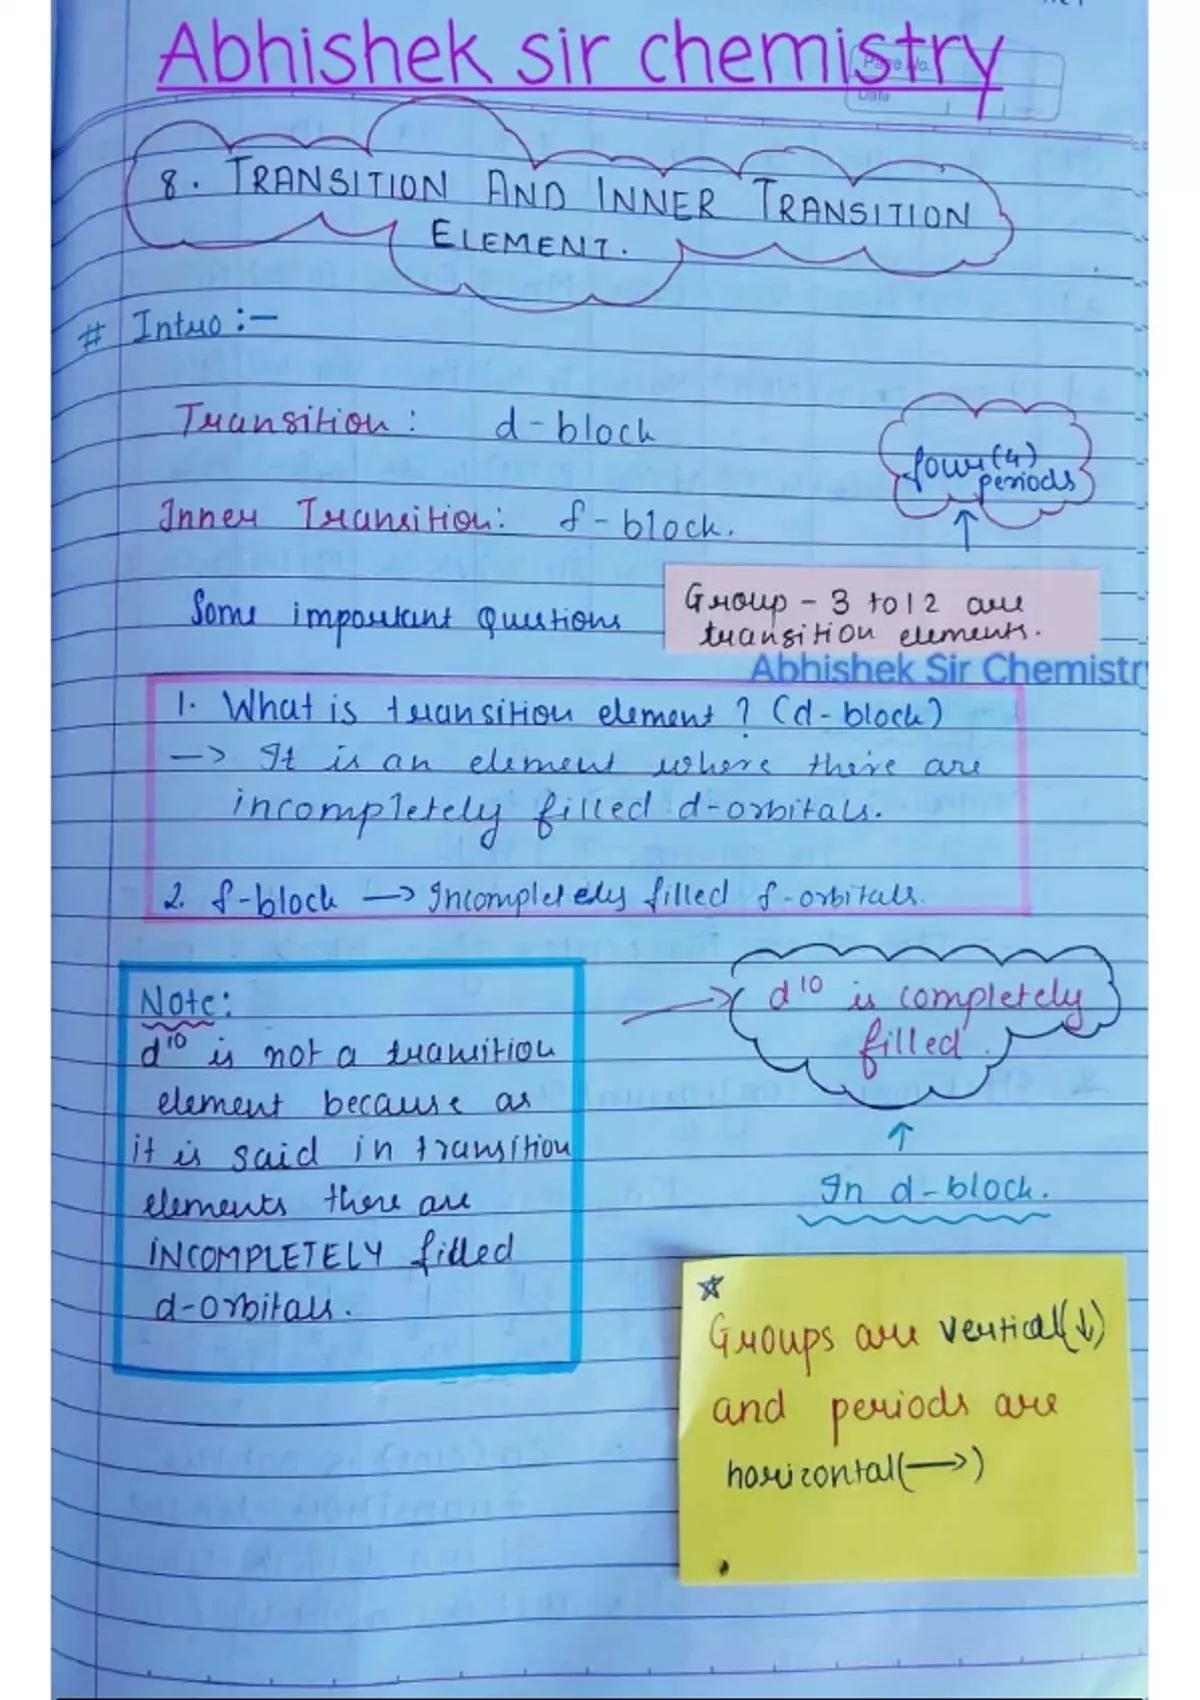 Abhishek sir chemistry
Page No.
Date
8. TRANSITION AND INNER TRANSITION
ELEMENT.
# Intro :-
Transition : d-block
four (4)
periods
Inner Transition: f-block.
Some important Questions
Group - 3 to 12 are
transition elements.
Abhishek Sir Chemistr
1. What is transition element ? (d-block)
-> It is an element where there are
incompletely filled d-orbitals.
2. f-block -> Incompletely filled f-orbitals.
Note:
d¹⁰ is not a transition
element because as
it is said in transition
elements there are
INCOMPLETELY filled
d-orbitals.
d¹⁰ is completely
filled.
↑
In d-block.
☆
Groups are vertical(↓)
and periods are
horizontal(→)